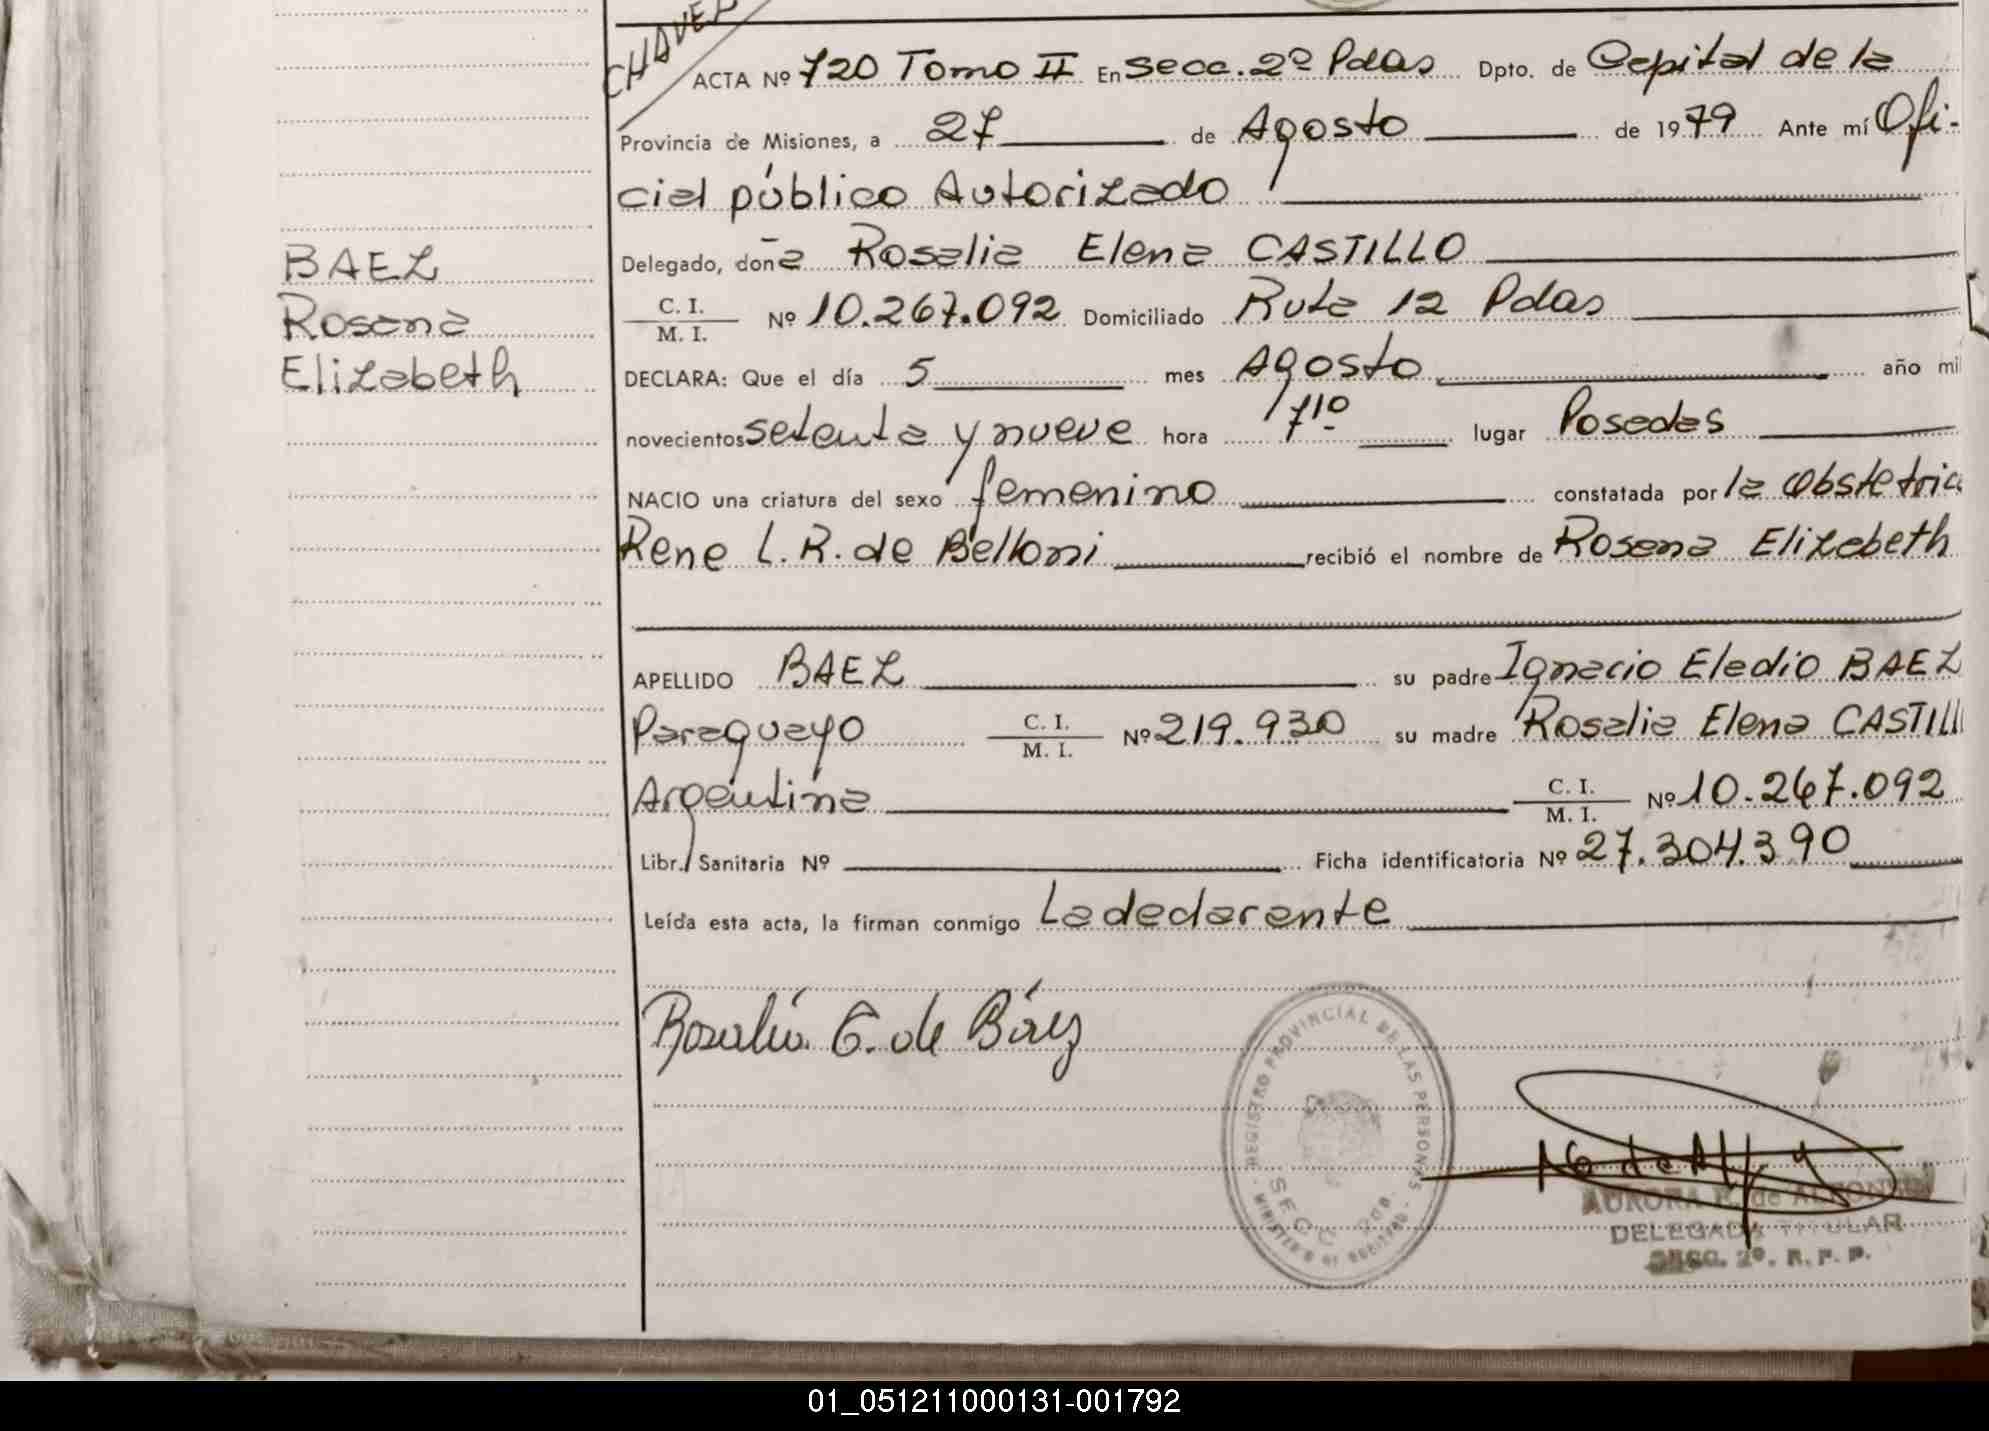 CHAVEZ
ACTA Nº 720 Tomo II En secc. 2º Pdas Dpto. de Capital de la
Provincia de Misiones, a 27 de Agosto de 1979 Ante mí Ofi-
cial público Autorizado
Delegado, doña Rosalia Elena CASTILLO
C. I.
M. I.
Nº 10.267.092 Domiciliado Ruta 12 Pdas
DECLARA: Que el día 5 mes Agosto año mil
novecientos setenta y nueve hora 7,10 lugar Posadas
NACIO una criatura del sexo femenino constatada por la Obstetrica
Rene L. R. de Belloni recibió el nombre de Rosana Elizabeth
APELLIDO BAEZ su padre Ignacio Eladio BAEZ
Paraguayo C. I. M. I. Nº 219.930 su madre Rosalia Elena CASTILL
Argentina C. I. M. I. Nº 10.267.092
Libr. Sanitaria Nº Ficha identificatoria Nº 27.304.390
Leída esta acta, la firman conmigo La declarante
BAEZ
Rosana
Elizabeth
Rosalía C. de Báez
REGISTRO PROVINCIAL DE LAS PERSONAS
SECC. 2da.
AURORA de
DELEGADA TITULAR
SECC. 2º. R. P. P.
01_051211000131-001792